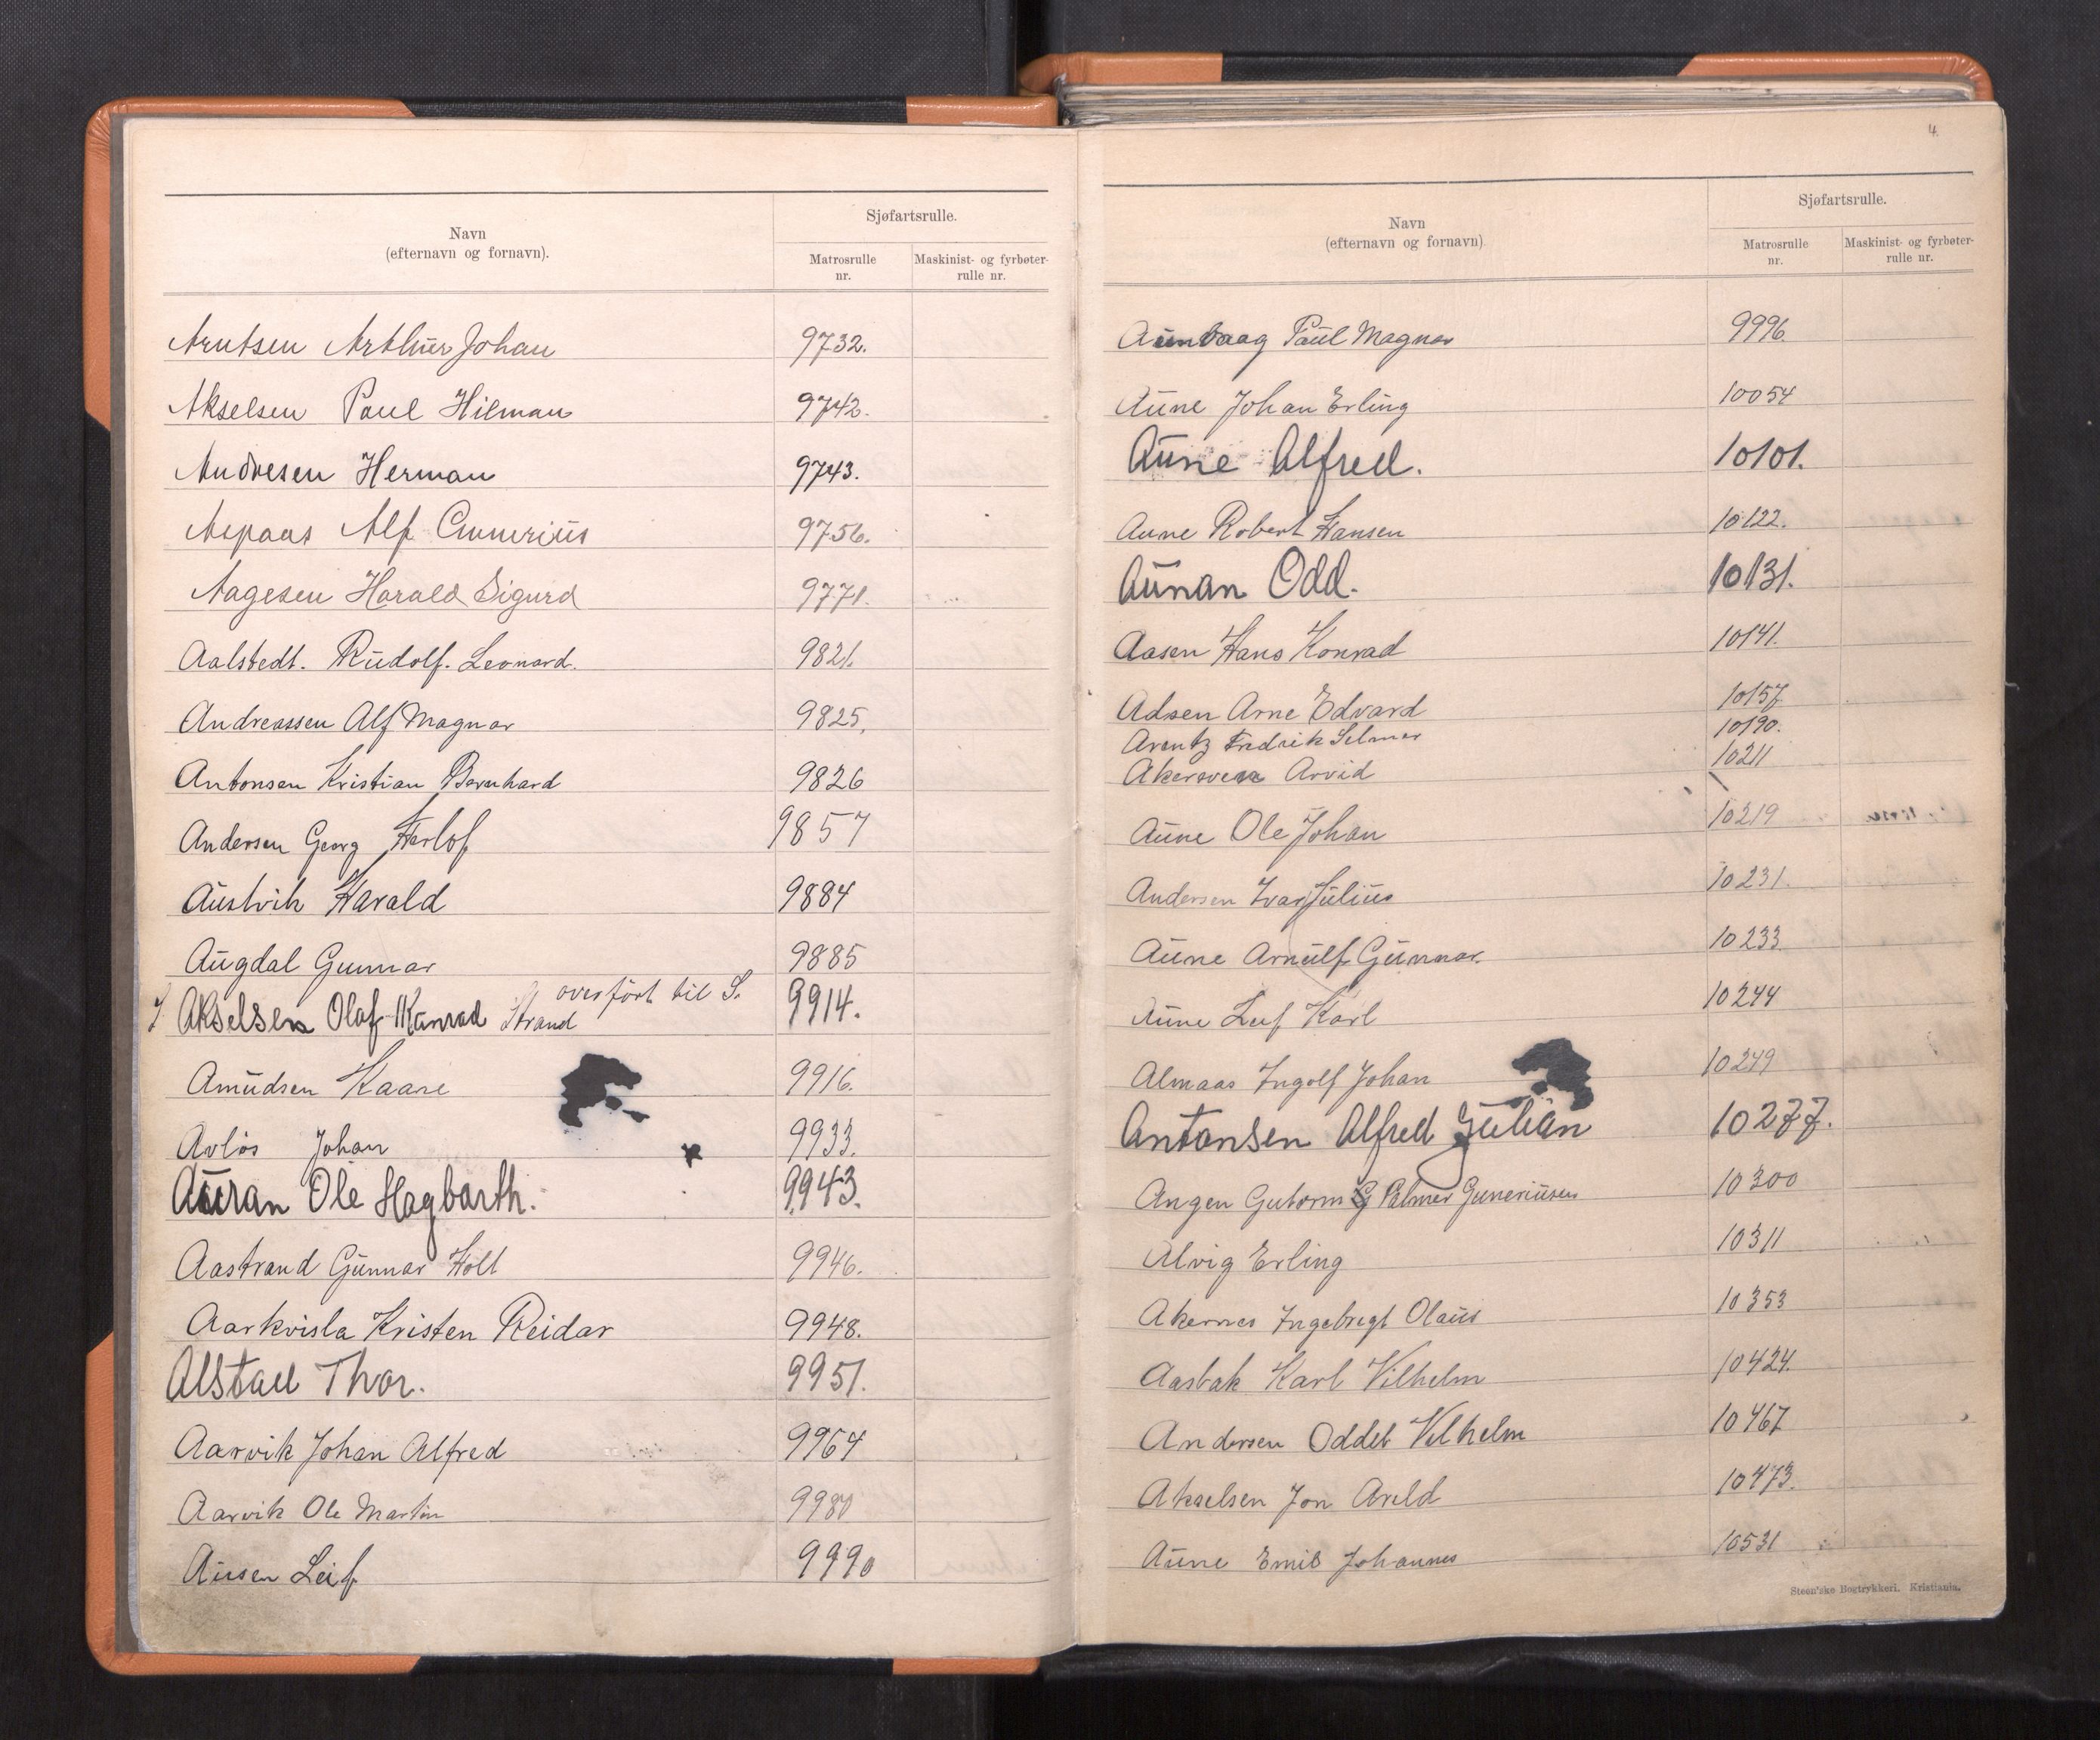 Navn
(efternavn og fornavn).
Sjøfartsrulle.
Matrosrulle
nr.
Maskinist- og fyrbøter-
rulle nr.
Arntsen Arthur Johan 9732.
Akselsen Paul Hilman 9742.
Andresen Herman 9743.
Aspaas Alf Emmerius 9756.
Aagesen Harald Sigurd 9771.
Aalstedt. Rudolf. Leonard. 9821.
Andreassen Alf Magnar 9825.
Antonsen Kristian Bernhard 9826
Andersen Georg Herlof 9857
Austvik Harald 9884
Augdal Gunnar 9885
overført til S.
Akselsen Olaf Konrad Strand 9914.
Amudsen Kaare 9916.
Avlös Johan 9933.
Auran Ole Hagbarth. 9943.
Aastrand Gunnar Holl 9946.
Aarkvisla Kristen Reidar 9948.
Alstad Thor. 9951.
Aarvik Johan Alfred 9964
Aarvik Ole Martin 9980
Ausen Leif 9990
4.
Navn
(efternavn og fornavn)
Sjøfartsrulle.
Matrosrulle
nr.
Maskinist- og fyrbøter-
rulle nr.
Aunvaag Paul Magnar 9996
Aune Johan Erling 10054
Aune Alfred. 10101.
Aune Robert Hansen 10122.
Aunan Odd. 10131.
Aasen Hans Konrad 10141.
Adsen Arne Edvard 10157
Arentz Fredrik Selmer 10190.
Akersven Arvid 10211
Aune Ole Johan 10219
Andersen Ivar Julius 10231.
Aune Arnulf Gunnar. 10233
Aune Leif Karl 10244
Almaas Ingolf Johan 10249
Antonsen Alfred Julian 10277.
Angen Gutorm Palmer Guneriusen 10300
Alvig Erling 10311
Akernes Ingebrigt Olaus 10353
Aasbak Karl Vilhelm 10424.
Andersen Oddleb Vilhelm 10467
Akselsen Jon Areld 10473.
Aune Emil Johannes 10531
Steen'ske Bogtrykkeri. Kristiania.